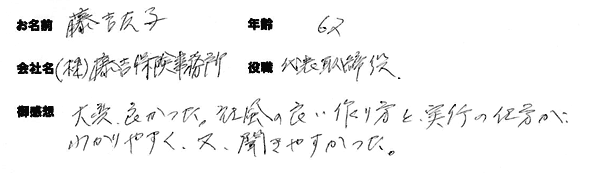 お名前 藤吉友子 年齢 62
会社名 (株)藤吉保険事務所 役職 代表取締役.
御感想 大変、良かった。社風の良い作り方と、実行の仕方が、
わかりやすく、又、聞きやすかった。